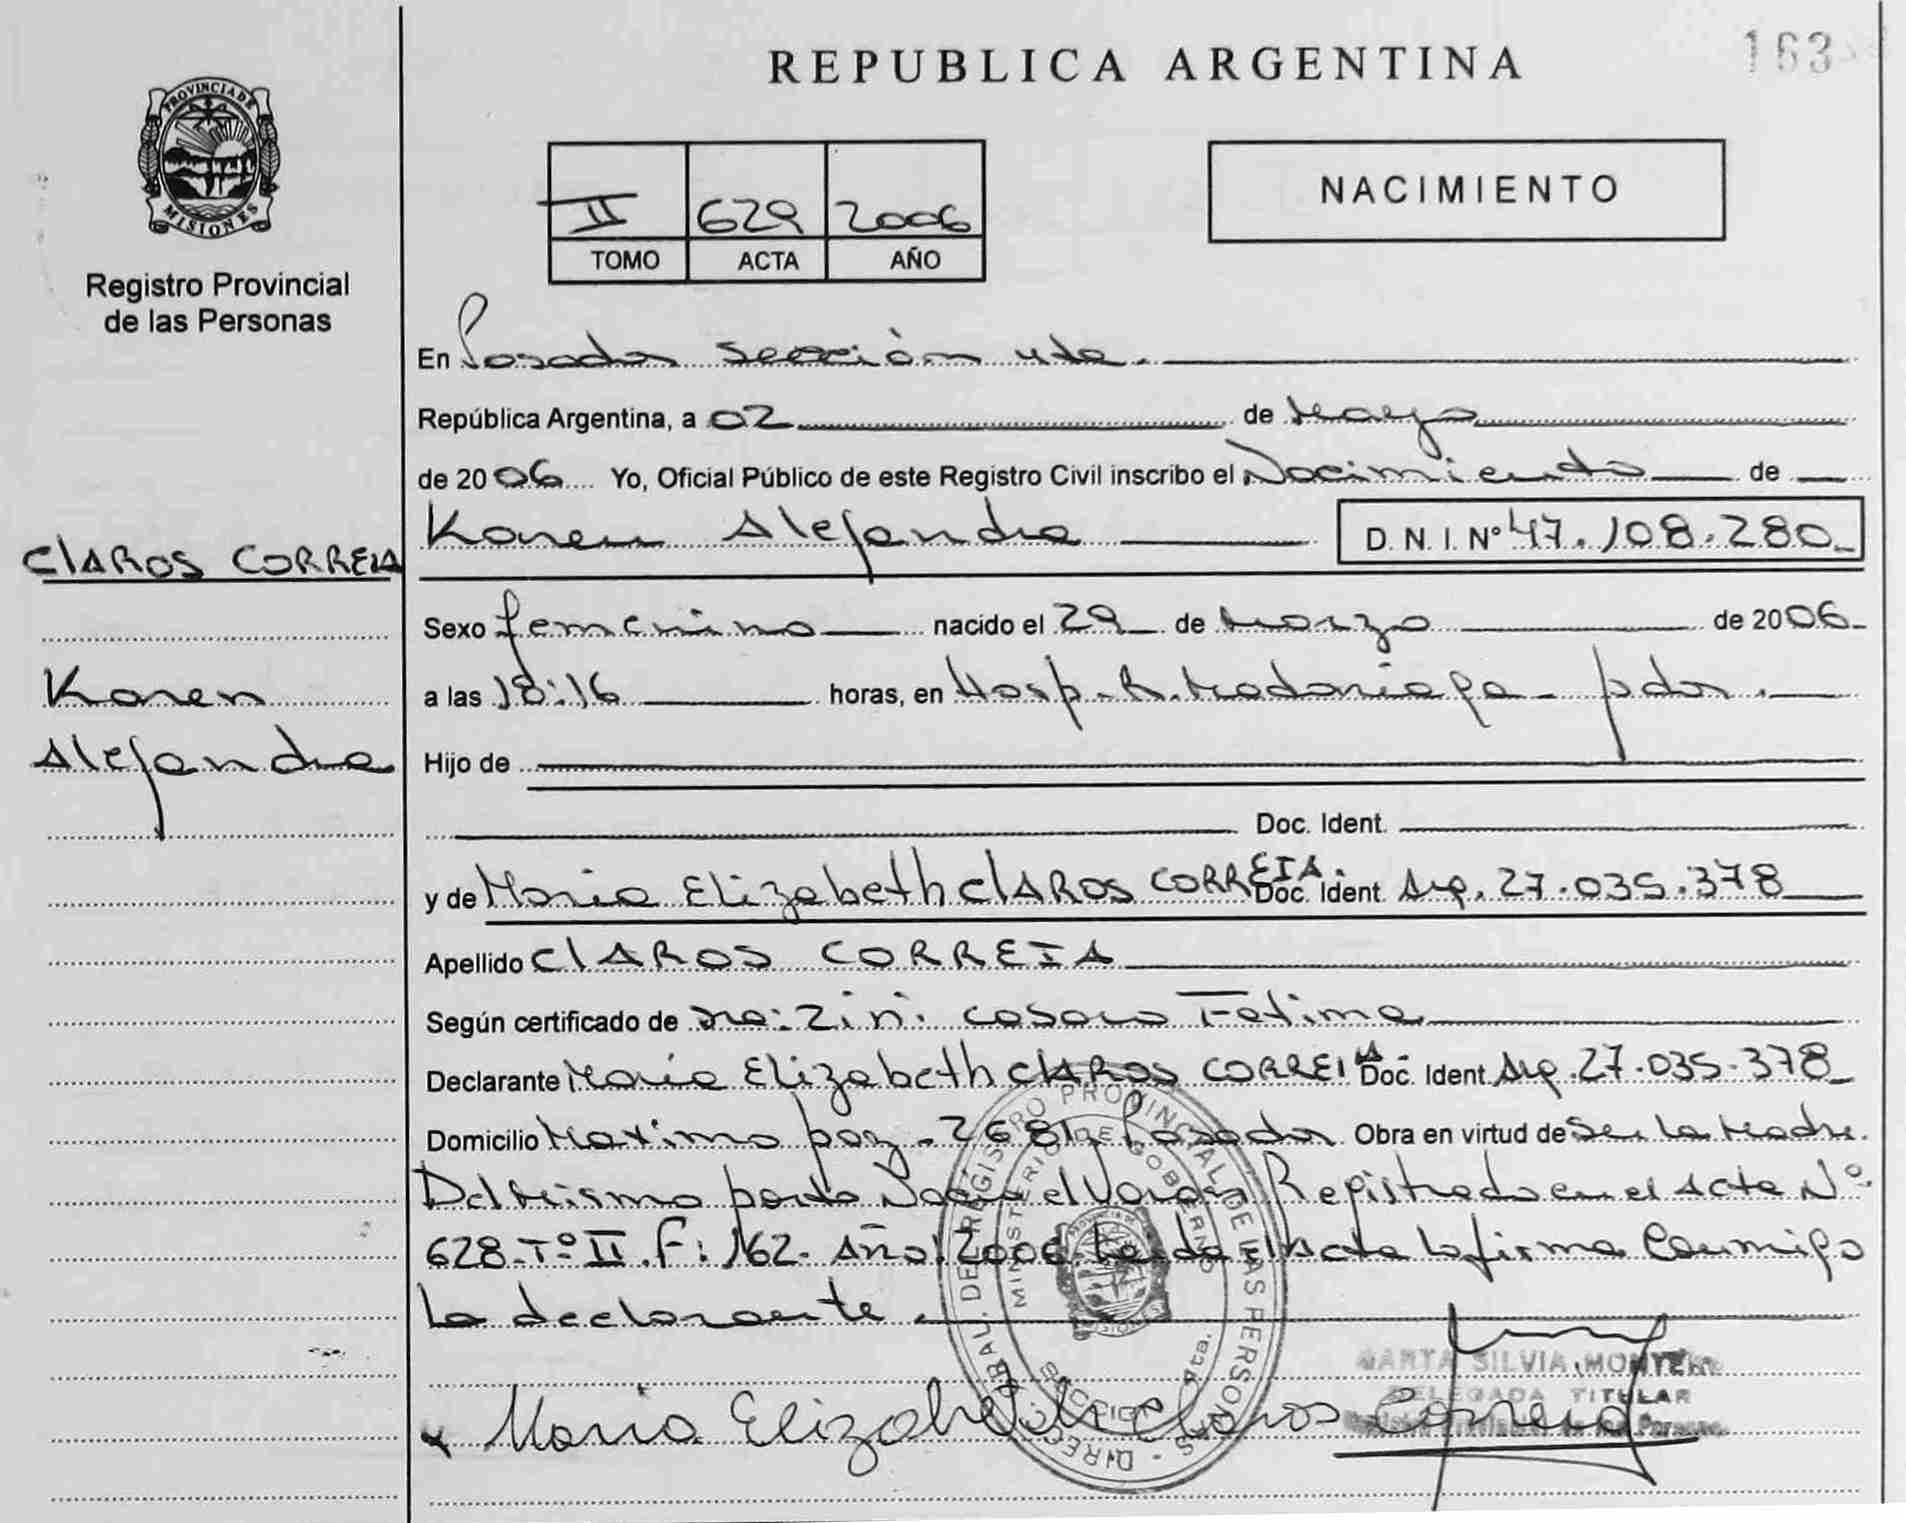 REPUBLICA ARGENTINA
163
PROVINCIA DE
MISIONES
Registro Provincial
de las Personas
II 629 2006
TOMO ACTA AÑO
NACIMIENTO
En Posadas sección 4ta.
República Argentina, a 02 de Mayo
de 2006 Yo, Oficial Público de este Registro Civil inscribo el Nacimiento de
Karen Alejandra D.N.I. Nº 47.108.280
CLAROS CORREIA
Karen
Alejandra
Sexo femenino nacido el 29 de Marzo de 2006
a las 18:16 horas, en Hosp. R. Madariaga - pdas.
Hijo de
Doc. Ident.
y de Maria Elizabeth CLAROS CORREIA Doc. Ident. Arg. 27.035.378
Apellido CLAROS CORREIA
Según certificado de Fatima
Declarante María Elizabeth CLAROS CORREIA Doc. Ident. Arg. 27.035.378
Domicilio Maximo paz - 2681 Posadas Obra en virtud de Ser La Madre.
Del Mismo parto Nació el Varon Registrado en el Acta Nº
628-Tº II. F: 162. Año: 2006 Leida el Acta la firma Conmigo
La declarante.
DIRECC. GRAL. DE REGISTRO PROVINCIAL DE LAS PERSONAS
MINISTERIO DE GOBIERNO
SECCION 4ta.
MARTA SILVIA MONTE
DELEGADA TITULAR
Maria Elizabeth Claros Correia